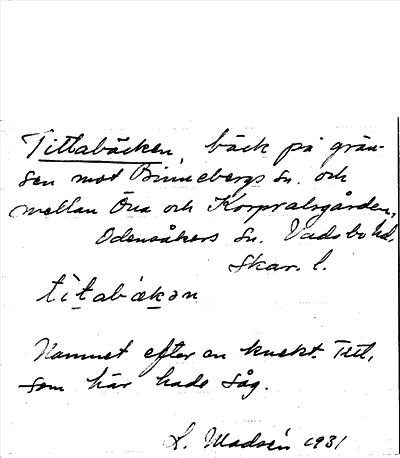 Tittabäcken, bäck på grän-
sen mot Binnebergs sn. och
mellan Öna och Korpralsgården,
Odensåkers sn. Vadsbo hd,
Skar. l.
tìtabækən
Namnet efter en knekt Titt,
som här hade såg.
L. Madsén 1931